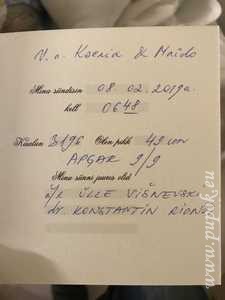 V. a. Ksenia & Maido
Mina sündisin 08. 02. 2019a.
kell 06 48
Kaalun 3196 Olen pikk 49 cm
APGAR 9/9
Minu sünni juures olid
ä/e ÜLLE VIŠNEVSKI
dr. KONSTANTIN RIDNÕI
www.pupok.eu